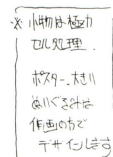 ※小物は極力
セル処理.
ポスター、大きい
ぬいぐるみは
作画の方で
デザインします